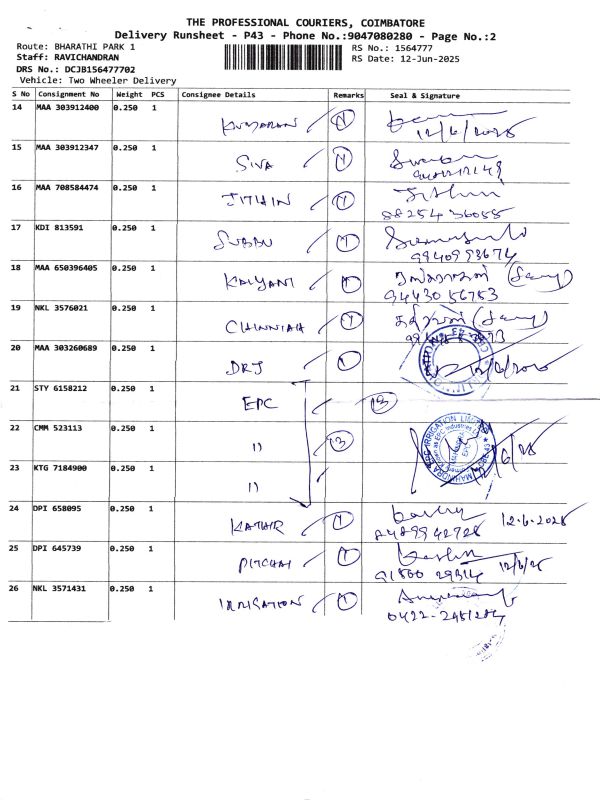 THE PROFESSIONAL COURIERS, COIMBATORE
Delivery Runsheet - P43 - Phone No.:9047080280 - Page No.:2
Route: BHARATHI PARK 1
RS No.: 1564777
Staff: RAVICHANDRAN
RS Date: 12-Jun-2025
DRS No.: DCJB156477702
Vehicle: Two Wheeler Delivery
S No Consignment No Weight PCS Consignee Details Remarks Seal & Signature
14 MAA 303912400 0.250 1 KUMARAN 1
12/6/2025
15 MAA 303912347 0.250 1 SIVA 1
16 MAA 708584474 0.250 1 JITHIN 1 Jithin
88254 36055
17 KDI 813591 0.250 1 SUBBU 1
9940993674
18 MAA 650396405 0.250 1 KALYANI 1
94430 56753
19 NKL 3576021 0.250 1 CHINNIAH 1
20 MAA 303260689 0.250 1 DRJ 1 12/6/2025
21 STY 6158212 0.250 1 EPC 13
22 CMM 523113 0.250 1 11 13
23 KTG 7184900 0.250 1 11
24 DPI 658095 0.250 1 KATHIR 1 12.6.2025
25 DPI 645739 0.250 1 PITCHAI 1 12/6/25
26 NKL 3571431 0.250 1 IRRIGATION 1